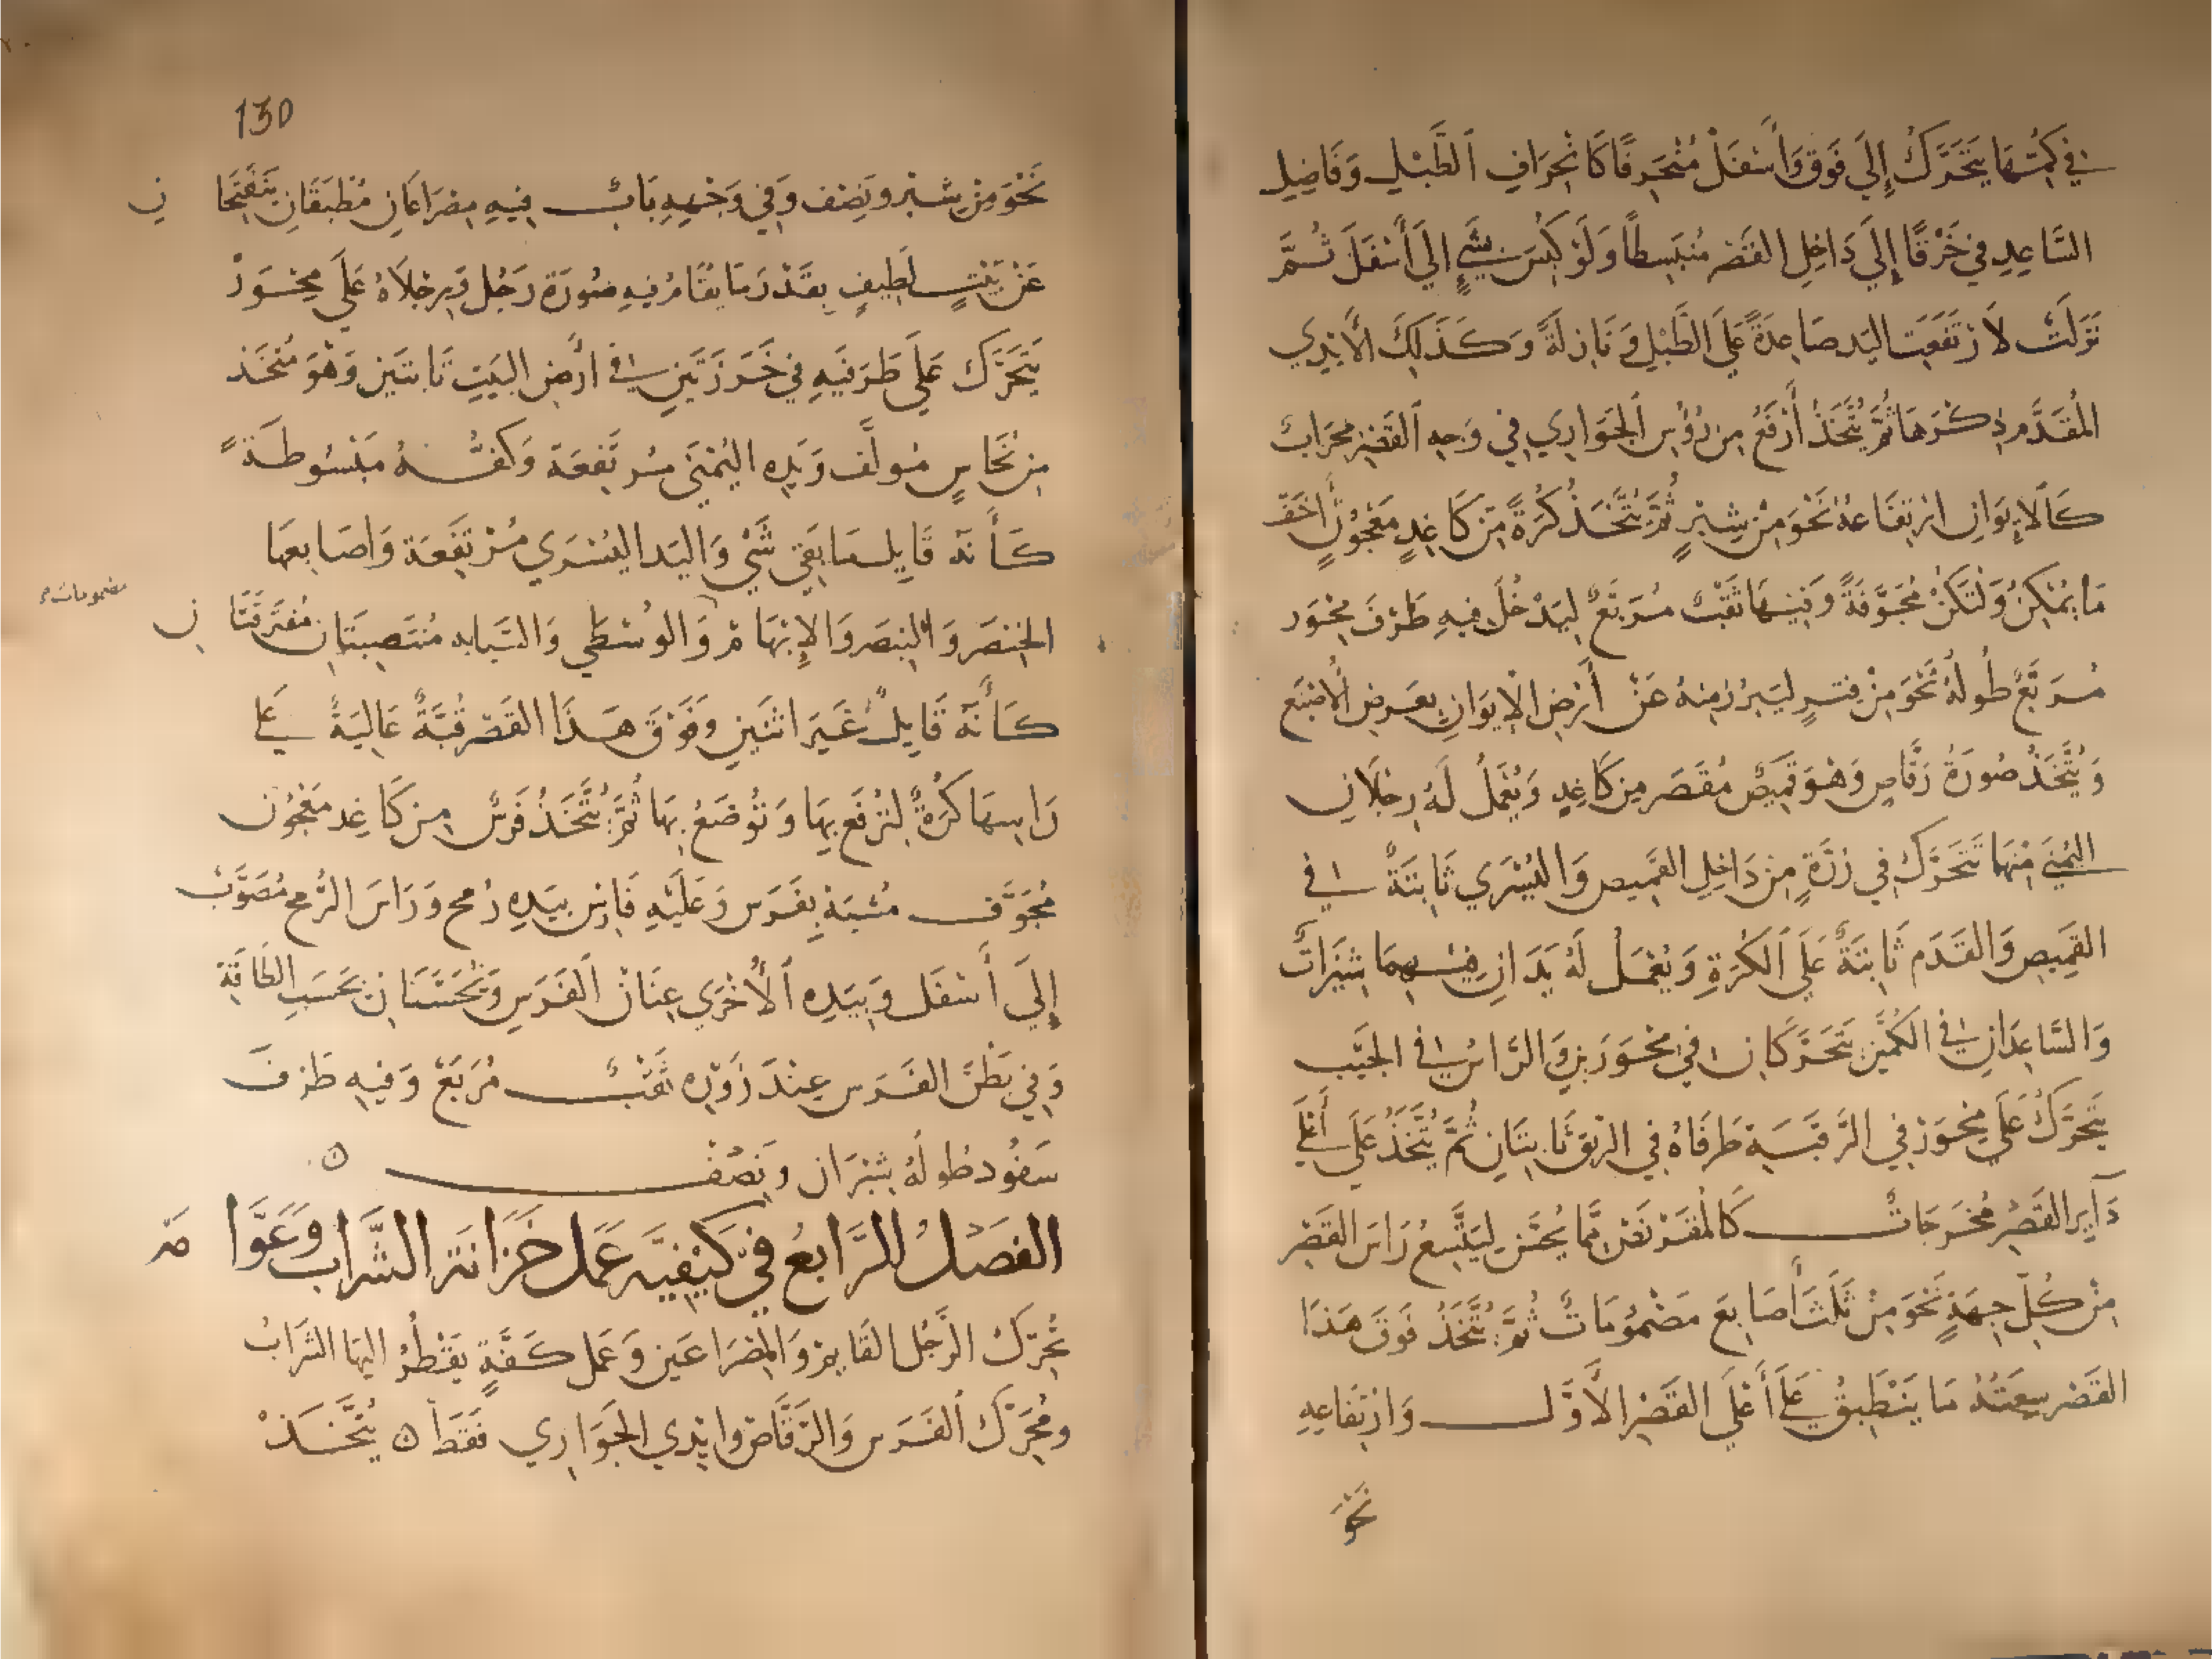 في كمتها يتحرك إلى فوق وأسفل منحرفًا كانحراف الطبل وفاضل
الساعد في خرقًا إلى داخل القصر منبسطًا ولو كبس بشيء إلى أسفل ثم
نزلت لارتفعت اليد صاعدة على الطبل ونازلة وكذلك الأيدي
المقدم ذكرها ثم يتخذ أرفع من رؤس الجواري في وجه القصر محراب
كالإيوان ارتفاعه نحو من شبر ثم يتخذ كرة من كاغد معجون أخف
ما يمكن ولتكن مجوفة وفيها ثقب مربع ليدخل فيه طرف محور
مربع طوله نحو من فتر ليبرز منه عن أرض الإيوان بعرض الأصبع
ويتخذ صورة رقاص وهو قميص مقصر من كاغد ويعمل له رجلان
اليمنى منها تتحرك في رزة من داخل القميص واليسرى ثابتة في
القميص والقدم ثابتة على الكرة ويعمل له يدان فيهما شيزات
والساعدان في الكمين يتحركان في محورين والراس في الجيب
يتحرك على محور في الرقبة طرفاه في الزيق ثابتان ثم يتخذ على أعلى
داير القصر مخرجات كالمقرنص مما يحسن ليتسع راس القصر
من كل جهة نحو من ثلث أصابع مضمومات ثم يتخذ فوق هذا
القصر سعته ما ينطبق على أعلى القصر الأول وارتفاعه
نحو
130
نحو من شبر ونصف وفي وجهه باب فيه مصراعان مطبقان ينفتحا ن
عن بيت لطيف بقدر ما يقام فيه صورة رجل وبرجلاه على محور
يتحرك على طرفيه في خرزتين في أرض البيت ثابتتين وهو متخذ
من نحاس مولف ويده اليمنى مرتفعة وكفه مبسوطة
كأنه قايل ما بقي شي واليد اليسرى مرتفعة واصابعها
الخنصر والبنصر والإبهام والوسطى والسبابه منتصبتان مفترقتا ن
مضمومات
كأنه قايل غير اثنين وفوق هذا القصر قبة عالية على
راسها كرة لترفع بها وتوضع بها ثم يتخذ فرس من كاغد معجون
مجوف مشبه بفرس وعليه فارس بيده رمح وراس الرمح مصوب
إلى أسفل وبيده الأخرى عنان الفرس ويحسنان بحسب الطاقة
وفي بطن الفرس عند زوره ثقب مربع وفيه طرف
سفود طوله شبران ونصف ه
الفصل الرابع في كيفية عمل خزانة الشراب وعوا مة
تحرك الرجل القايم والمصراعين وعمل كفة يقطر اليها الشراب
ومحرك الفرس والرقاص وايدي الجواري فقط ه يتخذ